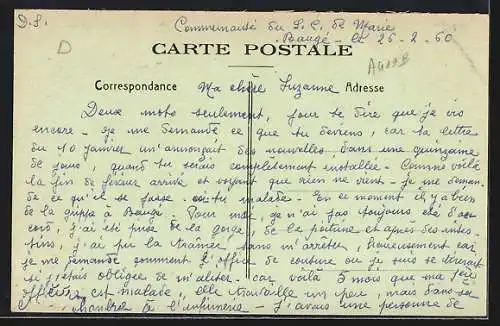 D.S.
Communauté du S.C. de Marie
Baugé - le 26-2-60
D
CARTE POSTALE
Correspondance Ma chère Suzanne Adresse
Deux mots seulement, pour te dire que je vis
encore - Je me demande ce que tu deviens, car la lettre
du 10 janvier m'annonçait des nouvelles, dans une quinzaine
de jours, quand tu serais complètement installée - Comme voilà
la fin de février arrivé et voyant que rien ne vient - je me deman-
de ce qu'il se passe - es-tu malade - En ce moment il y a bien
de la grippe à Baugé - Pour moi, je n'ai pas toujours été d'ac-
cord, j'ai été prise de la gorge, de la poitrine et après des intes-
tins, j'ai pu la traîner sans m'arrêter, heureusement car
je me demande comment l'office de couture ou je suis se
si j'étais obligée de m'aliter - car voilà 5 mois que ma 1ère
officière est malade, elle travaille un peu, mais dans sa
chambre à l'infirmerie - J'avais une personne de